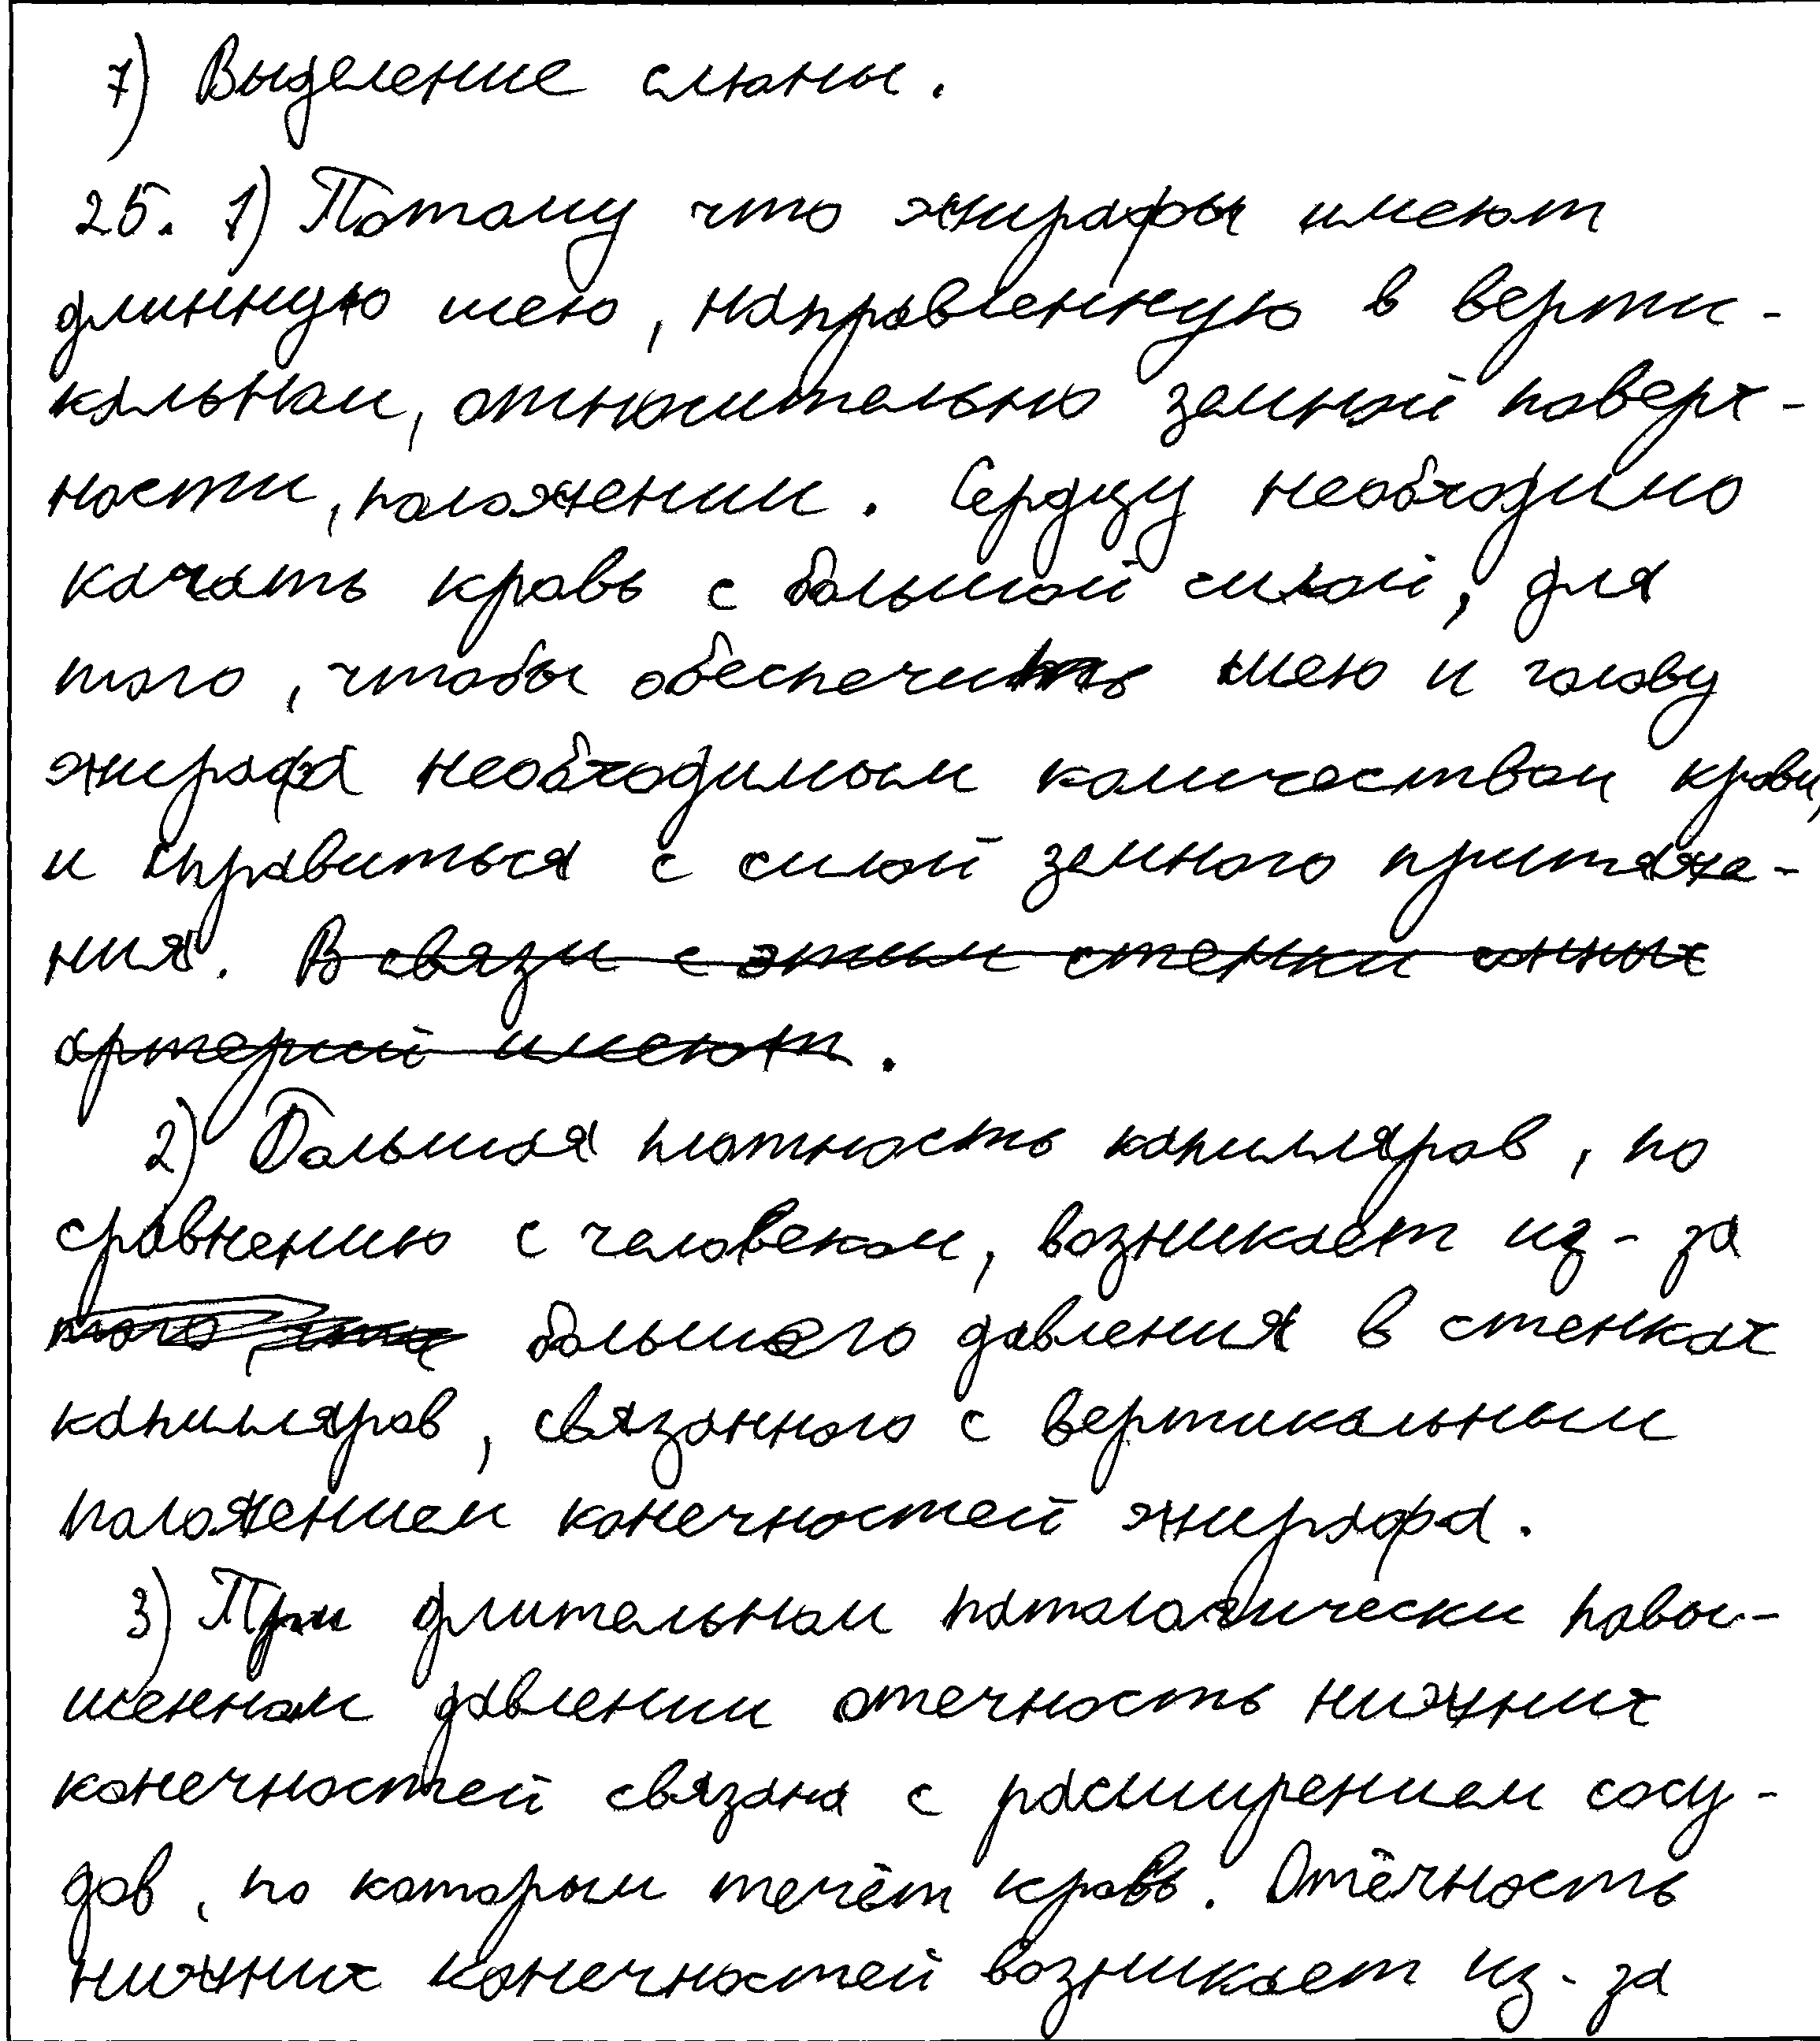 7) Выделение слюны.
25. 1) Потому что жирафы имеют
длинную шею, направленную в верти-
кальном, относительно земной поверх-
ности, положении. Сердцу необходимо
качать кровь с большой силой, для
того, чтобы обеспечить шею и голову
жирафа необходимым количеством крови,
и справиться с силой земного притяже-
ния. В связи с этим стенки сонных
артерий имеют.
2) Большая плотность капилляров, по
сравнению с человеком, возникает из-за
того, что большого давления в стенках
капилляров, связанного с вертикальным
положением конечностей жирафа.
3) При длительном патологически повы-
шенном давлении отечность нижних
конечностей связана с расширением сосу-
дов, по которым течёт кровь. Отёчность
нижних конечностей возникает из-за